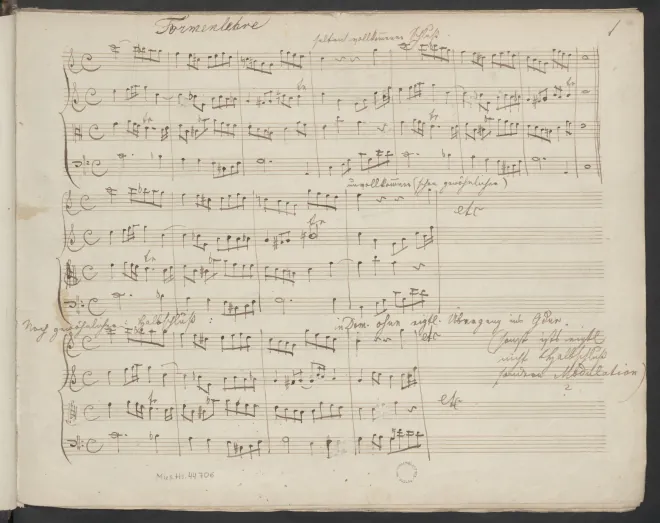 Formenlehre
1
selten vollkommen Schluß.
unvollkommen (schon gewöhnlicher)
etc
Noch gewöhnlicher: Halbschluß:
Dom. ohne eigtl. Übergang in G dur.
etc
(sonst ists eigtl.
nicht Halbschluß
sondern Modulation)
etc
Mus.Hs. 44706